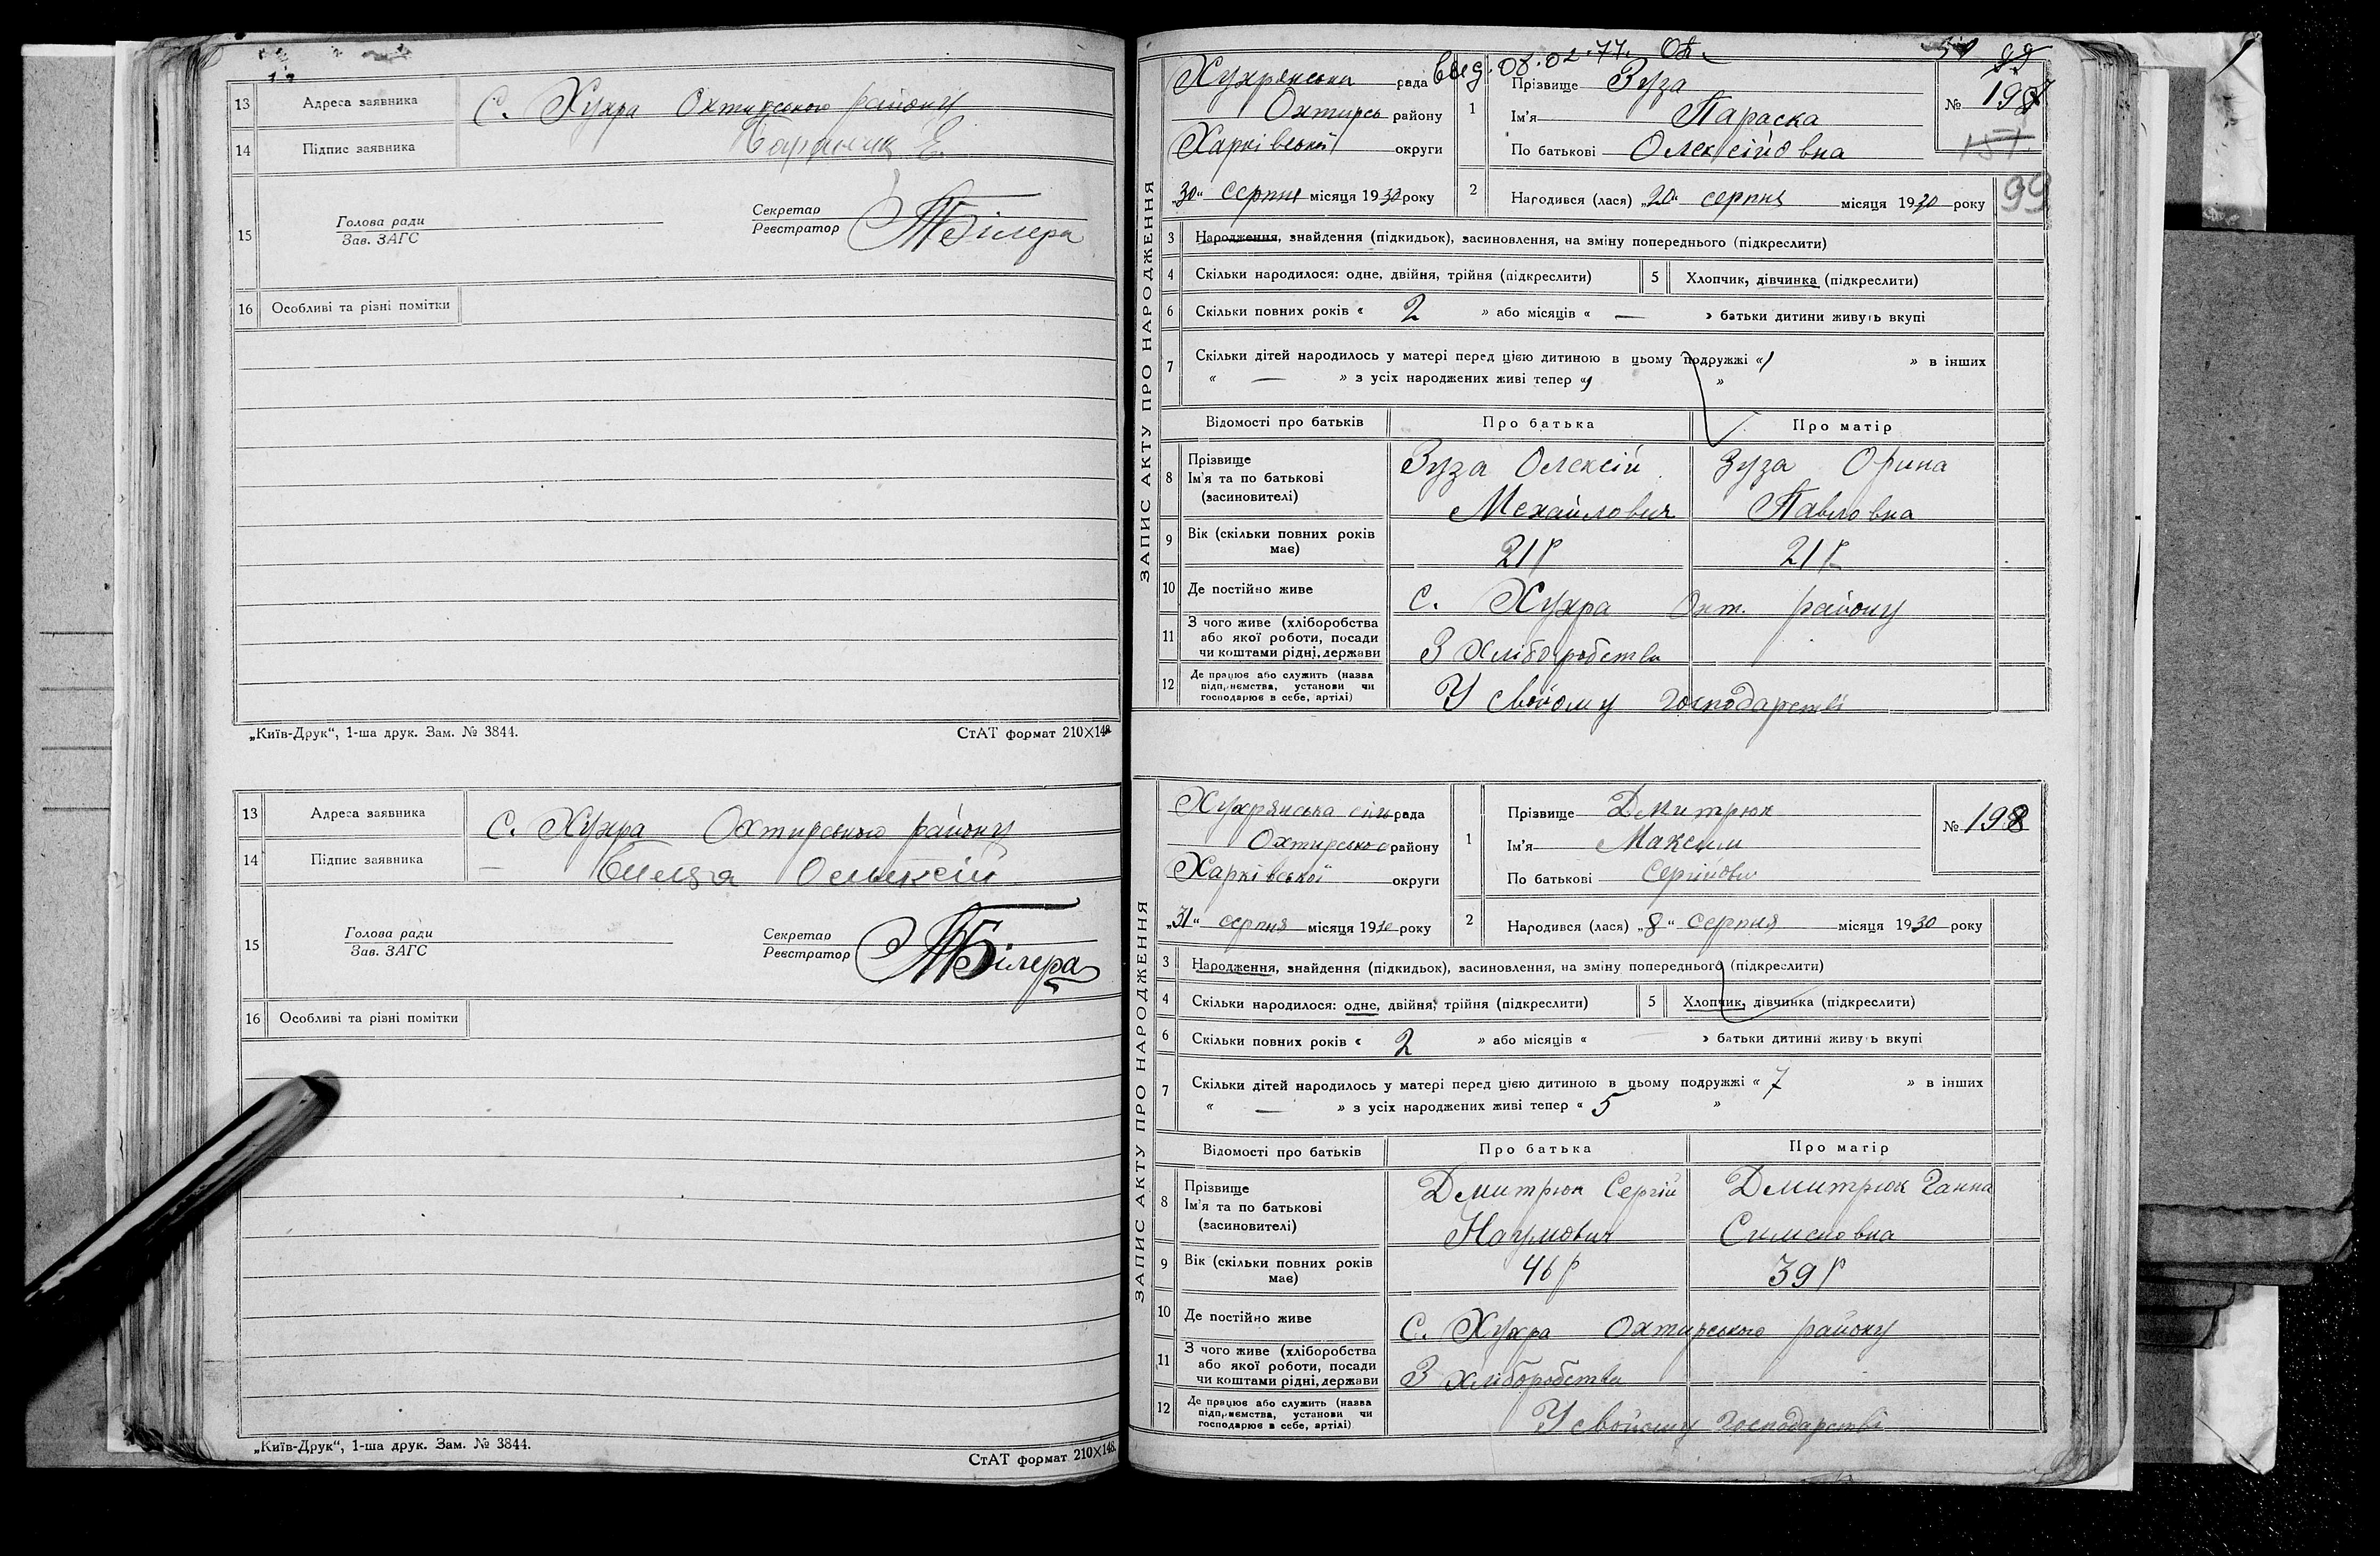 13 Адреса заявника с. Хухра Охтирського району
14 Підпис заявника
15 Голова ради
Зав. ЗАГС
Секретар
Реєстратор ТБілера
16 Особливі та різні помітки
„Київ-Друк“, 1-ша друк. Зам. № 3844. СтАТ формат 210×148
13 Адреса заявника с. Хухра Охтирського району
14 Підпис заявника
15 Голова ради
Зав. ЗАГС
Секретар
Реєстратор ТБілера
16 Особливі та різні помітки
„Київ-Друк“, 1-ша друк. Зам. № 3844. СтАТ формат 210×148.
ЗАПИС АКТУ ПРО НАРОДЖЕННЯ
Хухрянська рада
Охтирсь району
Харківської округи
„30“ серпня місяця 1930 року
1 Прізвище Зуза
Ім'я Параска
По батькові Олексійовна
№ 197
151
99
2 Народився (лася) „20“ серпня місяця 1930 року
3 Народження, знайдення (підкидьок), засиновлення, на зміну попереднього (підкреслити)
4 Скільки народилося: одне, двійня, трійня (підкреслити) 5 Хлопчик, дівчинка (підкреслити)
6 Скільки повних років « 2 » або місяців « — » батьки дитини живуть вкупі
7 Скільки дітей народилось у матері перед цією дитиною в цьому подружжі « 1 » в інших
« — » з усіх народжених живі тепер « 1 »
Відомості про батьків Про батька Про матір
8 Прізвище
Ім'я та по батькові
(засиновителі)
Зуза Олексій
Михайлович
Зуза Орина
Павловна
9 Вік (скільки повних років має) 21 р 21 р
10 Де постійно живе с. Хухра Охт. району
11 З чого живе (хліборобства
або якої роботи, посади
чи коштами рідні, держави
З хліборобства
12 Де працює або служить (назва
підприємства, установи чи
господарює в себе, артілі)
У свойому господарстві
ЗАПИС АКТУ ПРО НАРОДЖЕННЯ
Хухрянська сіль рада
Охтирсько району
Харківської округи
„31“ серпня місяця 1930 року
1 Прізвище Дмитрюк
Ім'я Максим
По батькові Сергійови
№ 198
2 Народився (лася) „8“ серпня місяця 1930 року
3 Народження, знайдення (підкидьок), засиновлення, на зміну попереднього (підкреслити)
4 Скільки народилося: одне, двійня, трійня (підкреслити) 5 Хлопчик, дівчинка (підкреслити)
6 Скільки повних років « 2 » або місяців « » батьки дитини живуть вкупі
7 Скільки дітей народилось у матері перед цією дитиною в цьому подружжі « 7 » в інших
« — » з усіх народжених живі тепер « 5 »
Відомості про батьків Про батька Про матір
8 Прізвище
Ім'я та по батькові
(засиновителі)
Дмитрюк Сергій
Наумович
Дмитрюк Ганна
Сименовна
9 Вік (скільки повних років має) 46 р 39 р
10 Де постійно живе с. Хухра Охтирського району
11 З чого живе (хліборобства
або якої роботи, посади
чи коштами рідні, держави
З хліборобства
12 Де працює або служить (назва
підприємства, установи чи
господарює в себе, артілі)
У свойому господарстві